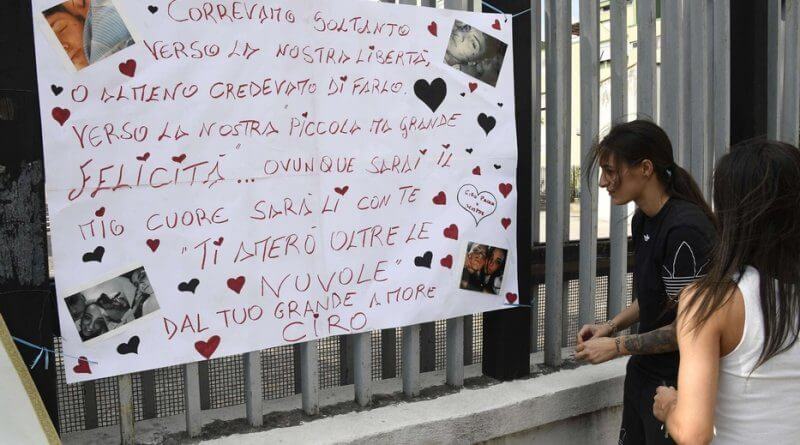 CORREVAMO SOLTANTO
VERSO LA NOSTRA LIBERTÀ,
O ALMENO CREDEVAMO DI FARLO.
VERSO LA NOSTRA PICCOLA MA GRANDE
FELICITÀ... OVUNQUE SARAI IL
MIO CUORE SARÀ LÌ CON TE
"TI AMERÒ OLTRE LE
NUVOLE"
DAL TUO GRANDE AMORE
CIRO
CIRO